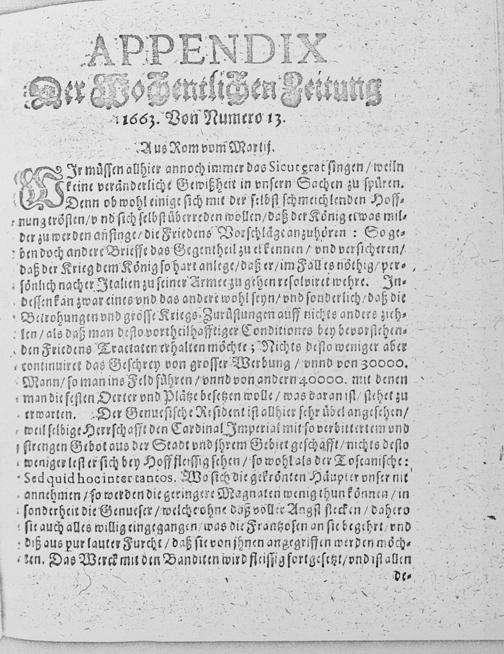 APPENDIX
Der Wochentlichen Zeitung
1663. Von Numero 13.
Aus Rom vom Martij.
WIr müssen allhier annoch immer das Sicut erat singen / weiln
keine veränderliche Gewißheit in unsern Sachen zu spüren.
Denn ob wohl einige sich mit der selbst schmeichlenden Hoff-
nung trösten / vnd sich selbst überreden wollen / daß der König etwas mil-
der zu werden anfinge / die Friedens Vorschläge anzuhören : So ge-
ben doch andere Brieffe das Gegentheil zu erkennen / vnd versicheren /
daß der Krieg dem König so hart anlege / daß er / im Fall es nöthig / per-
sönlich nacher Italien zu seiner Armee zu gehen resolviret wehre. In-
dessen kan zwar eines vnd das andere wohl seyn / vnd sonderlich / daß die
Betrohungen vnd grosse Kriegs-Zurüstungen auff nichts anders zieh-
len / als daß man desto vortheilhafftiger Conditiones bey bevorstehen-
den Friedens Tractaten erhalten möchte ; Nichts desto weniger aber
continuiret das Geschrey von grosser Werbung / vnnd von 30000.
Mann / so man ins Feld führen / vnnd von andern 40000. mit denen
man die festen Oerter vnd Plätze besetzen wolle / was daran ist / stehet zu
erwarten. Der Genuesische Resident ist allhier sehr übel angesehen /
weil selbige Herrschafft den Cardinal Imperial mit so verbittertem vnd
strengen Gebot aus der Stadt vnd jhrem Gebiet geschafft / nichts desto
weniger lest er sich bey Hoff fleissig sehen / so wohl als der Toscanische :
Sed quid hoc inter tantos. Wo sich die gekrönten Häupter unser nit
annehmen / so werden die geringere Magnaten wenig thun können / in
sonderheit die Genueser / welche ohne daß voller Angst stecken / dahero
sie auch alles willig eingegangen / was die Frantzosen an sie begehrt / vnd
diß aus pur lauter Furcht / daß sie von jhnen angegriffen werden möch-
ten. Das Werck mit den Banditen wird fleissig fortgesetzt / vnd ist allen
de-